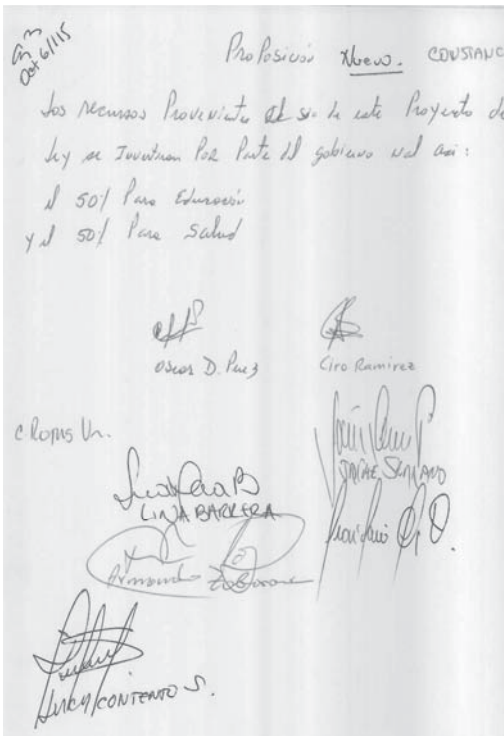 Oct 6/15
Proposición Nueva. CONSTANC
Los recursos Provenientes de este Proyecto de
Ley se Invertiran Por Parte del gobierno nal asi:
el 50% Para Educación
y el 50% Para Salud
Oscar D. Perez
Ciro Ramirez
C. Roms Un.
JAIME SERRANO
LINA BARRERA
Armando Zabarain
LUCY CONTENTO S.